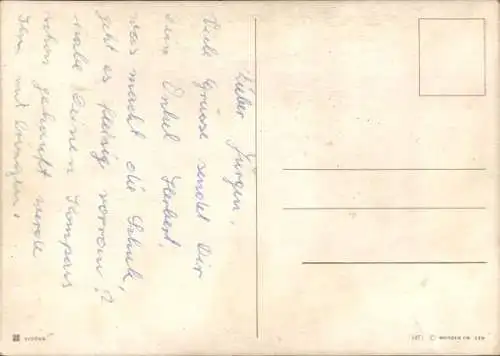 Lieber Jürgen,
Viele Grüsse sendet Dir
Dein Onkel Herbert,
was macht die Schule,
geht es fleisig vorran!?
habe Deinen Kompass
schon gekauft werde
Ihn mit bringen.